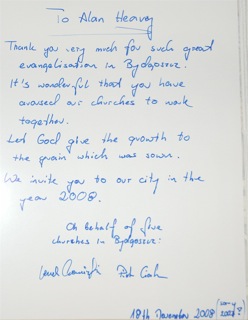 To Alan Heavey
Thank you very much for such great
evangelisation in Bydgoszcz.
It's wonderful that you have
aroused our churches to work
together.
Let God give the growth to
the grain which was sown.
We invite you to our city in the
year 2008.
On behalf of five
churches in Bydgoszcz:
18th November 2008